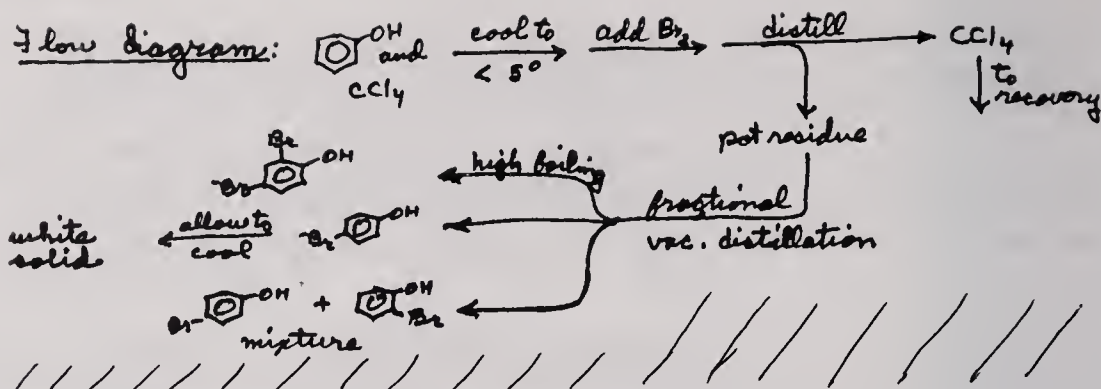 Flow diagram:
OH
and
CCl4
cool to
< 5°
add Br2
distill
CCl4
to
recovery
pot residue
fractional
vac. distillation
high boiling
Br
OH
Br
Br
OH
allow to
cool
white
solid
Br
OH
+
OH
Br
mixture